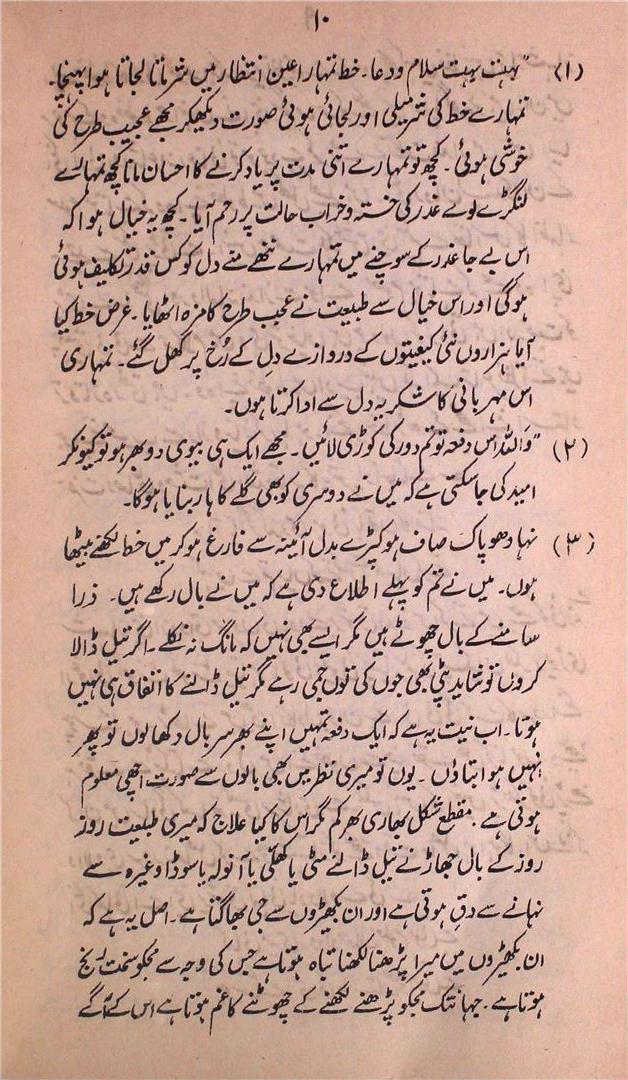 ۱۰
(۱) "بہت بہت سلام ودعا۔ خط تمہارا عین انتظار میں شرماتا لجاتا ہوا پہنچا۔
تمہارے خط کی شرمیلی اور لجائی ہوئی صورت دیکھیکر مجھے عجیب طرح کی
خوشی ہوئی۔ کچھ تو تمہارے اتنی مدت پر یاد کرنے کا احسان مانا کچھ تمہارے
لنگڑے لولے عذر کی خستہ و خراب حالت پر رحم آیا۔ کچھ یہ خیال ہوا کہ
اس بے جا عذر کے سوچنے میں تمہارے ننھے منے دل کو کس قدر تکلیف ہوئی
ہوگی اور اس خیال سے طبیعت نے عجب طرح کا مزہ اٹھایا۔ غرض خط کیا
آیا ہزاروں نئی کیفیتوں کے دروازے دل کے رُخ پر کھل گئے۔ تمہاری
اس مہربانی کا شکریہ دل سے ادا کرتا ہوں۔
(۲) "وَاللہ اس دفعہ تو تم دور کی کوڑی لائیں۔ مجھے ایک ہی بیوی دوبھر ہو تو کیونکر
امید کی جاسکتی ہے کہ میں نے دوسری کو بھی گلے کا ہار بنایا ہوگا۔
(۳) نہا دھو پاک صاف ہو کپڑے بدل آئینہ سے فارغ ہوکر میں خط لکھنے بیٹھا
ہوں۔ میں نے تم کو پہلے اطلاع دی ہے کہ میں نے بال رکھے ہیں۔ ذرا
سامنے کے بال چھوٹے ہیں مگر ایسے بھی نہیں کہ مانگ نہ نکلے۔ اگر تیل ڈالا
کروں تو شاید پٹی بھی جوں کی توں جمی رہے مگر تیل ڈالنے کا اتفاق ہی نہیں
ہوتا۔ اب نیت یہ ہے کہ ایک دفعہ تمہیں اپنے بھر سر بال دکھا لوں تو پھر
انہیں ہوا بتاؤں۔ یوں تو میری نظر میں بھی بالوں سے صورت اچھی معلوم
ہوتی ہے۔ مقطع شکل بھاری بھرکم مگر اس کا کیا علاج کہ میری طبیعت روز
روز کے بال جھاڑنے تیل ڈالنے مٹی یا کھلّی یا آنولہ یا سوڈا وغیرہ سے
نہانے سے دق ہوتی ہے اور ان بکھیڑوں سے جی بھاگتا ہے۔ اصل یہ ہے کہ
ان بکھیڑوں میں میرا پڑھنا لکھنا تباہ ہوتا ہے جس کی وجہ سے مجکو سخت رنج
ہوتا ہے۔ جہانتک مجکو پڑھنے لکھنے کے چھوٹنے کا غم ہوتا ہے اس کے آگے